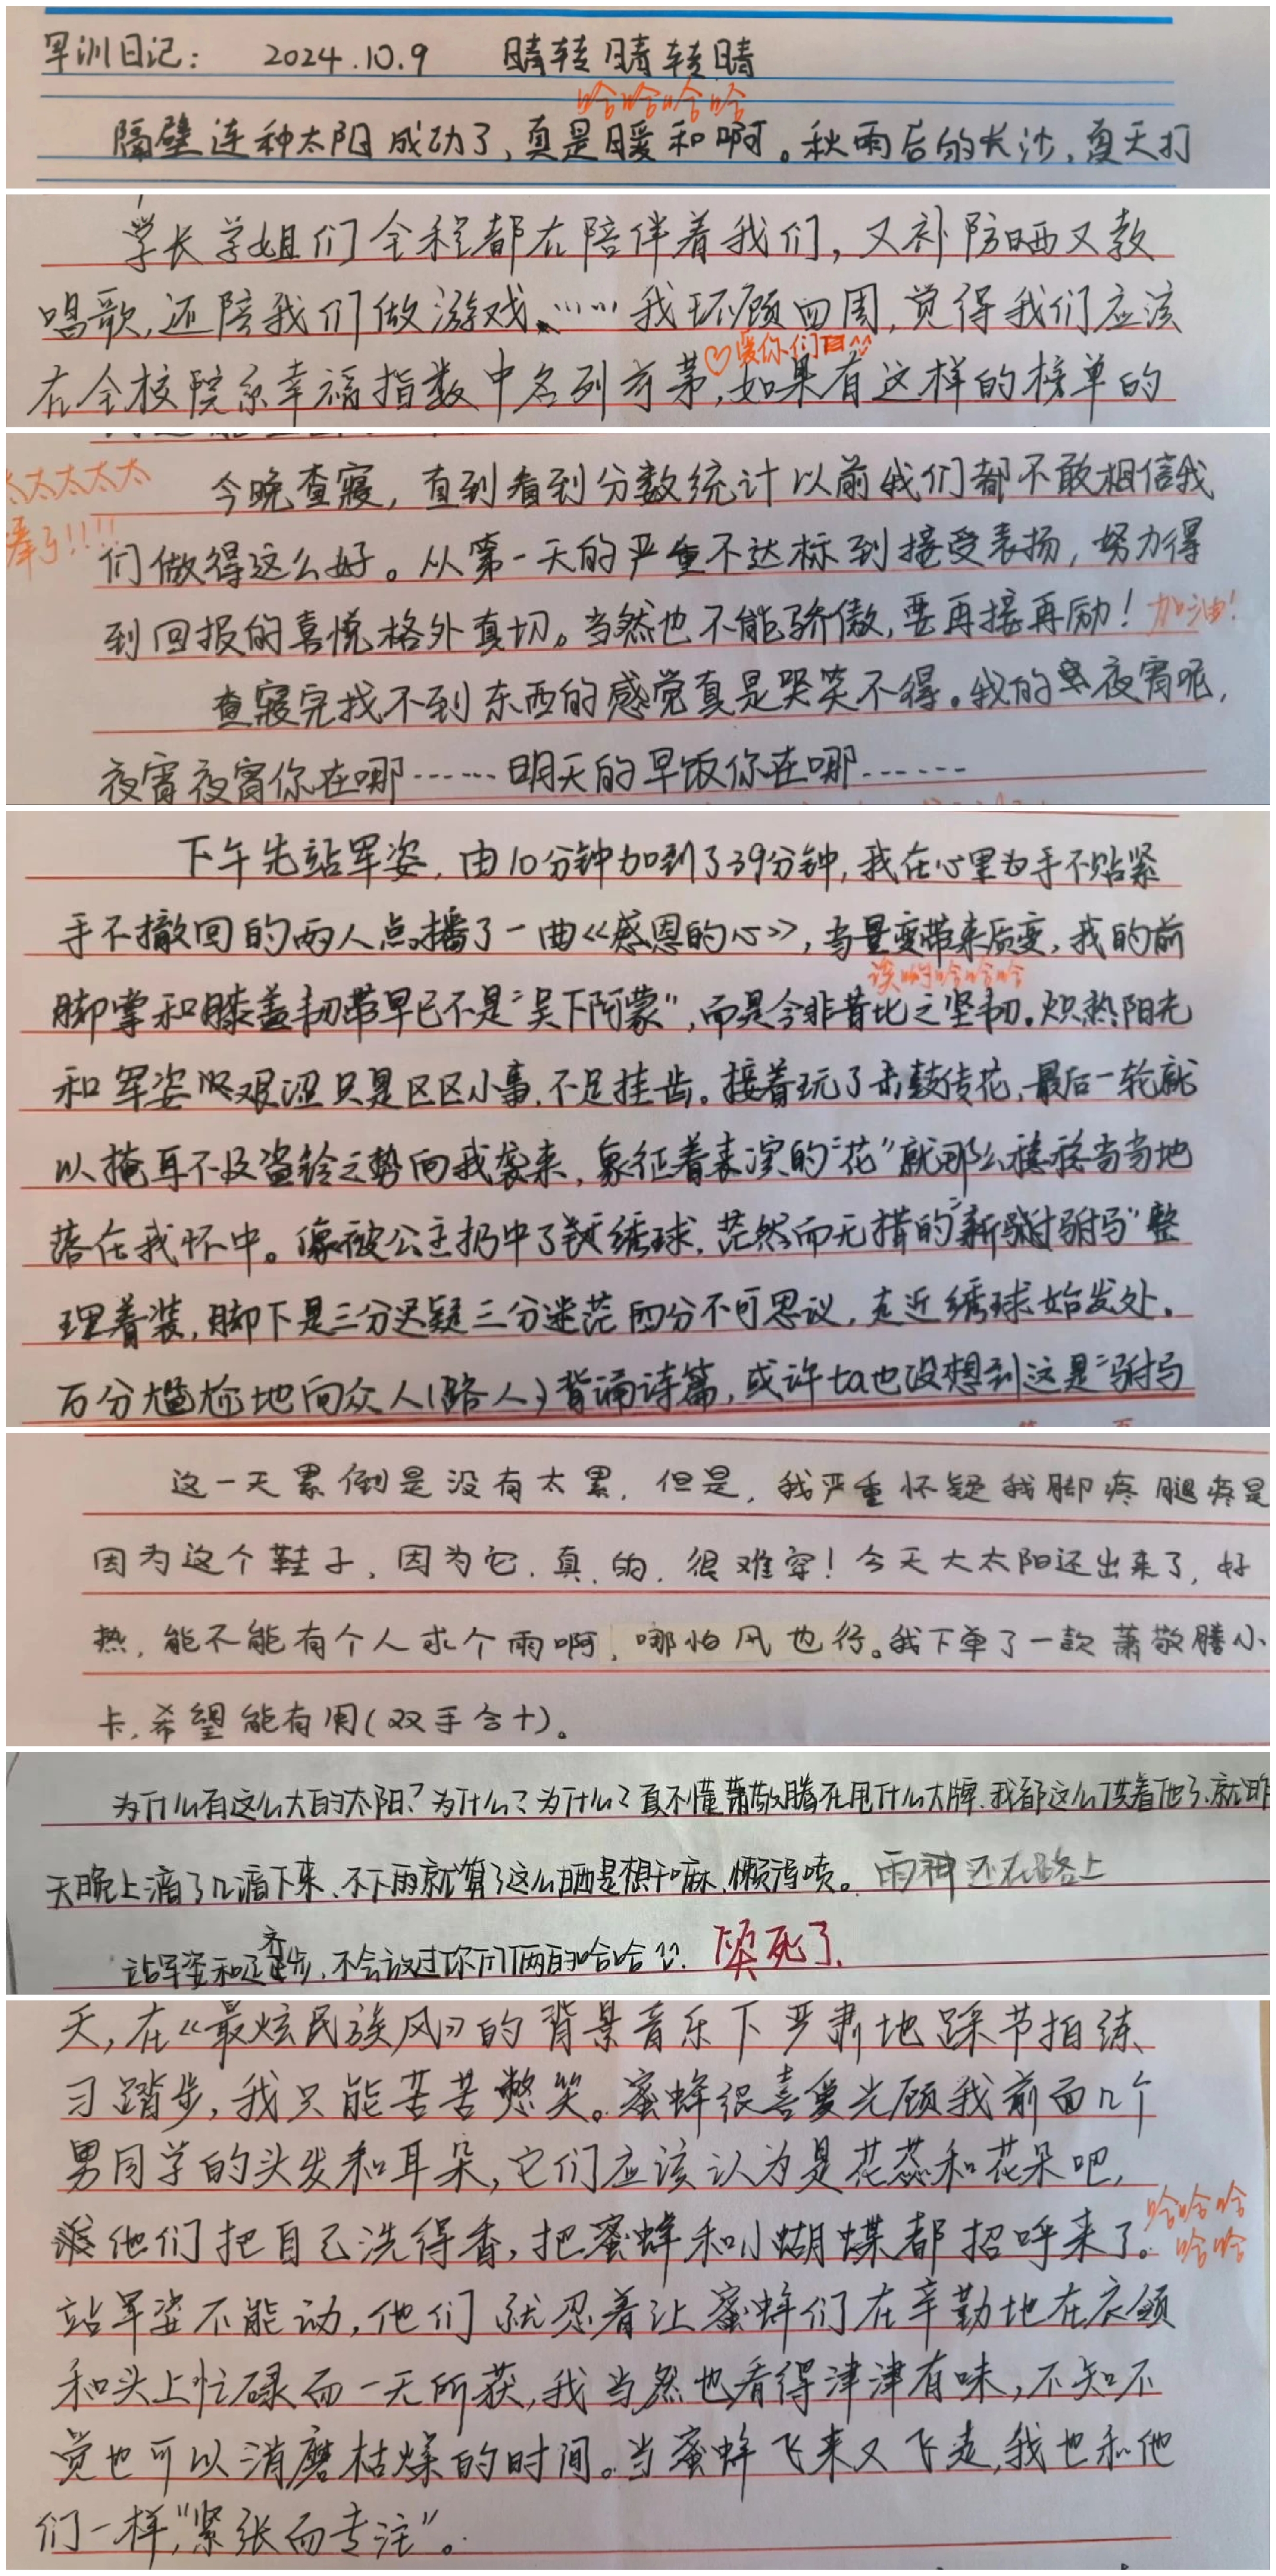 军训日记： 2024.10.9 晴转晴转晴
哈哈哈哈
隔壁连种太阳成功了，真是暖和啊。秋雨后的长沙，夏天打
学长学姐们全程都在陪伴着我们，又补防晒又教
唱歌，还陪我们做游戏……我环顾四周，觉得我们应该
♡爱你们
在全校院系幸福指数中名列前茅，如果有这样的榜单的
太太太太太
棒了!!!!
今晚查寝，直到看到分数统计以前我们都不敢相信我
们做得这么好。从第一天的严重不达标到接受表扬，努力得
到回报的喜悦格外真切。当然也不能骄傲，要再接再励！加油！
查寝完找不到东西的感觉真是哭笑不得。我的夜宵呢，
夜宵夜宵你在哪……明天的早饭你在哪……
下午先站军姿，由10分钟加到了39分钟，我在心里为手不贴紧
手不撤回的两人点播了一曲《感恩的心》，当量变带来质变，我的前
哈哈哈
脚掌和膝盖韧带早已不是“吴下阿蒙”，而是今非昔比之坚韧。炽热阳光
和军姿艰涩只是区区小事，不足挂齿。接着玩了击鼓传花，最后一轮就
以掩耳不及盗铃之势向我袭来，象征着表演的“花”就那么稳稳当当地
落在我怀中。像被公主扔中了绣球，茫然而无措的“新驸马”整
理着装，脚下是三分迟疑三分迷茫四分不可思议，走近绣球始发处。
百分尴尬地向众人（路人）背诵诗篇，或许ta也没想到这是“驸马
这一天累倒是没有太累，但是，我严重怀疑我脚疼腿疼是
因为这个鞋子，因为它，真，的，很难穿！今天大太阳还出来了，好
热，能不能有个人求个雨啊，哪怕风也行。我下单了一款萧敬腾小
卡，希望能有用（双手合十）。
为什么有这么大的太阳？为什么？为什么？真不懂萧敬腾在甩什么大牌，我都这么供着他了，就昨
天晚上滴了几滴下来，不下雨就算了这么晒是想干嘛，懒得喷。雨神还在路上
站军姿和正齐步，不会放过你们俩的哈哈 笑死了。
天，在《最炫民族风》的背景音乐下严肃地踩节拍练
习踏步，我只能苦苦憋笑。蜜蜂很喜爱光顾我前面几个
男同学的头发和耳朵，它们应该认为是花蕊和花朵吧，
他们把自己洗得香，把蜜蜂和小蝴蝶都招呼来了。哈哈哈哈哈
站军姿不能动，他们就忍着让蜜蜂们在辛勤地在衣领
和头上忙碌而一无所获，我当然也看得津津有味，不知不
觉也可以消磨枯燥的时间。当蜜蜂飞来又飞走，我也和他
们一样，“紧张而专注”。